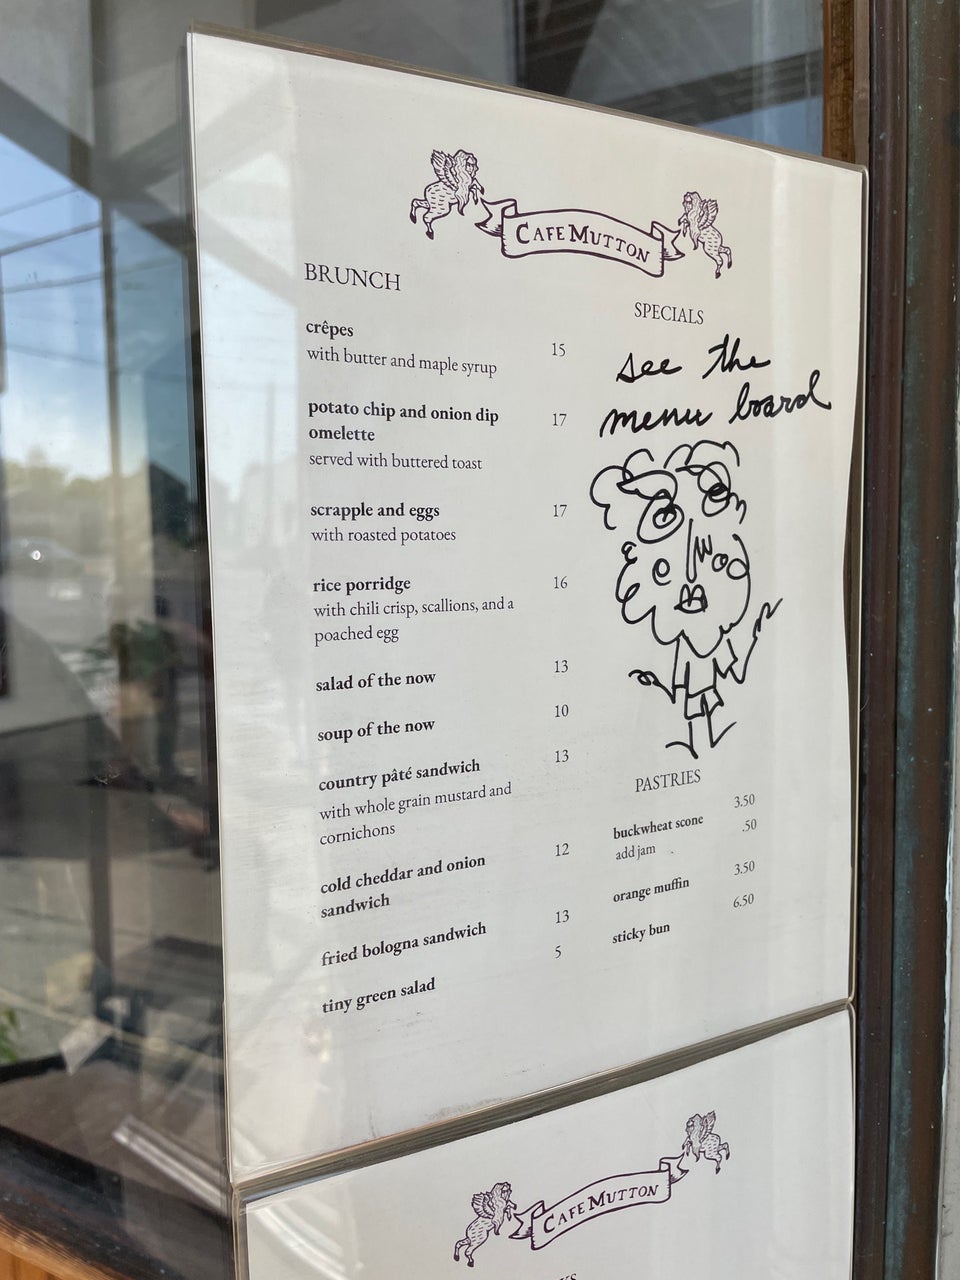 CAFE MUTTON
BRUNCH
crêpes 15
with butter and maple syrup
potato chip and onion dip 17
omelette
served with buttered toast
scrapple and eggs 17
with roasted potatoes
rice porridge 16
with chili crisp, scallions, and a
poached egg
salad of the now 13
soup of the now 10
country pâté sandwich 13
with whole grain mustard and
cornichons
cold cheddar and onion 12
sandwich
fried bologna sandwich 13
tiny green salad 5
SPECIALS
see the
menu board
PASTRIES
buckwheat scone 3.50
add jam .50
orange muffin 3.50
sticky bun 6.50
CAFE MUTTON